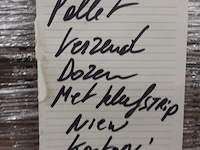 Pallet
Verzend
Dozen
Met klufstrip
Niew